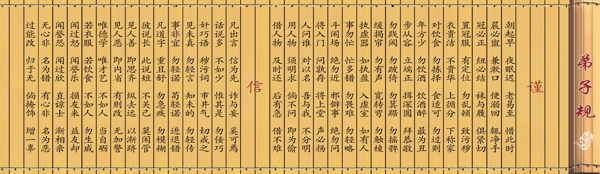 弟子规
谨
朝起早 夜眠迟 老易至 惜此时
晨必盥 兼漱口 便溺回 辄净手
冠必正 纽必结 袜与履 俱紧切
置冠服 有定位 勿乱顿 致污秽
衣贵洁 不贵华 上循分 下称家
对饮食 勿拣择 食适可 勿过则
年方少 勿饮酒 饮酒醉 最为丑
步从容 立端正 揖深圆 拜恭敬
勿践阈 勿跛倚 勿箕踞 勿摇髀
缓揭帘 勿有声 宽转弯 勿触棱
执虚器 如执盈 入虚室 如有人
事勿忙 忙多错 勿畏难 勿轻略
斗闹场 绝勿近 邪僻事 绝勿问
将入门 问孰存 将上堂 声必扬
人问谁 对以名 吾与我 不分明
用人物 须明求 倘不问 即为偷
借人物 及时还 后有急 借不难
信
凡出言 信为先 诈与妄 奚可焉
话说多 不如少 惟其是 勿佞巧
奸巧语 秽污词 市井气 切戒之
见未真 勿轻言 知未的 勿轻传
事非宜 勿轻诺 苟轻诺 进退错
凡道字 重且舒 勿急疾 勿模糊
彼说长 此说短 不关己 莫闲管
见人善 即思齐 纵去远 以渐跻
见人恶 即内省 有则改 无加警
唯德学 唯才艺 不如人 当自砺
若衣服 若饮食 不如人 勿生戚
闻过怒 闻誉乐 损友来 益友却
闻誉恐 闻过欣 直谅士 渐相亲
无心非 名为错 有心非 名为恶
过能改 归于无 倘掩饰 增一辜